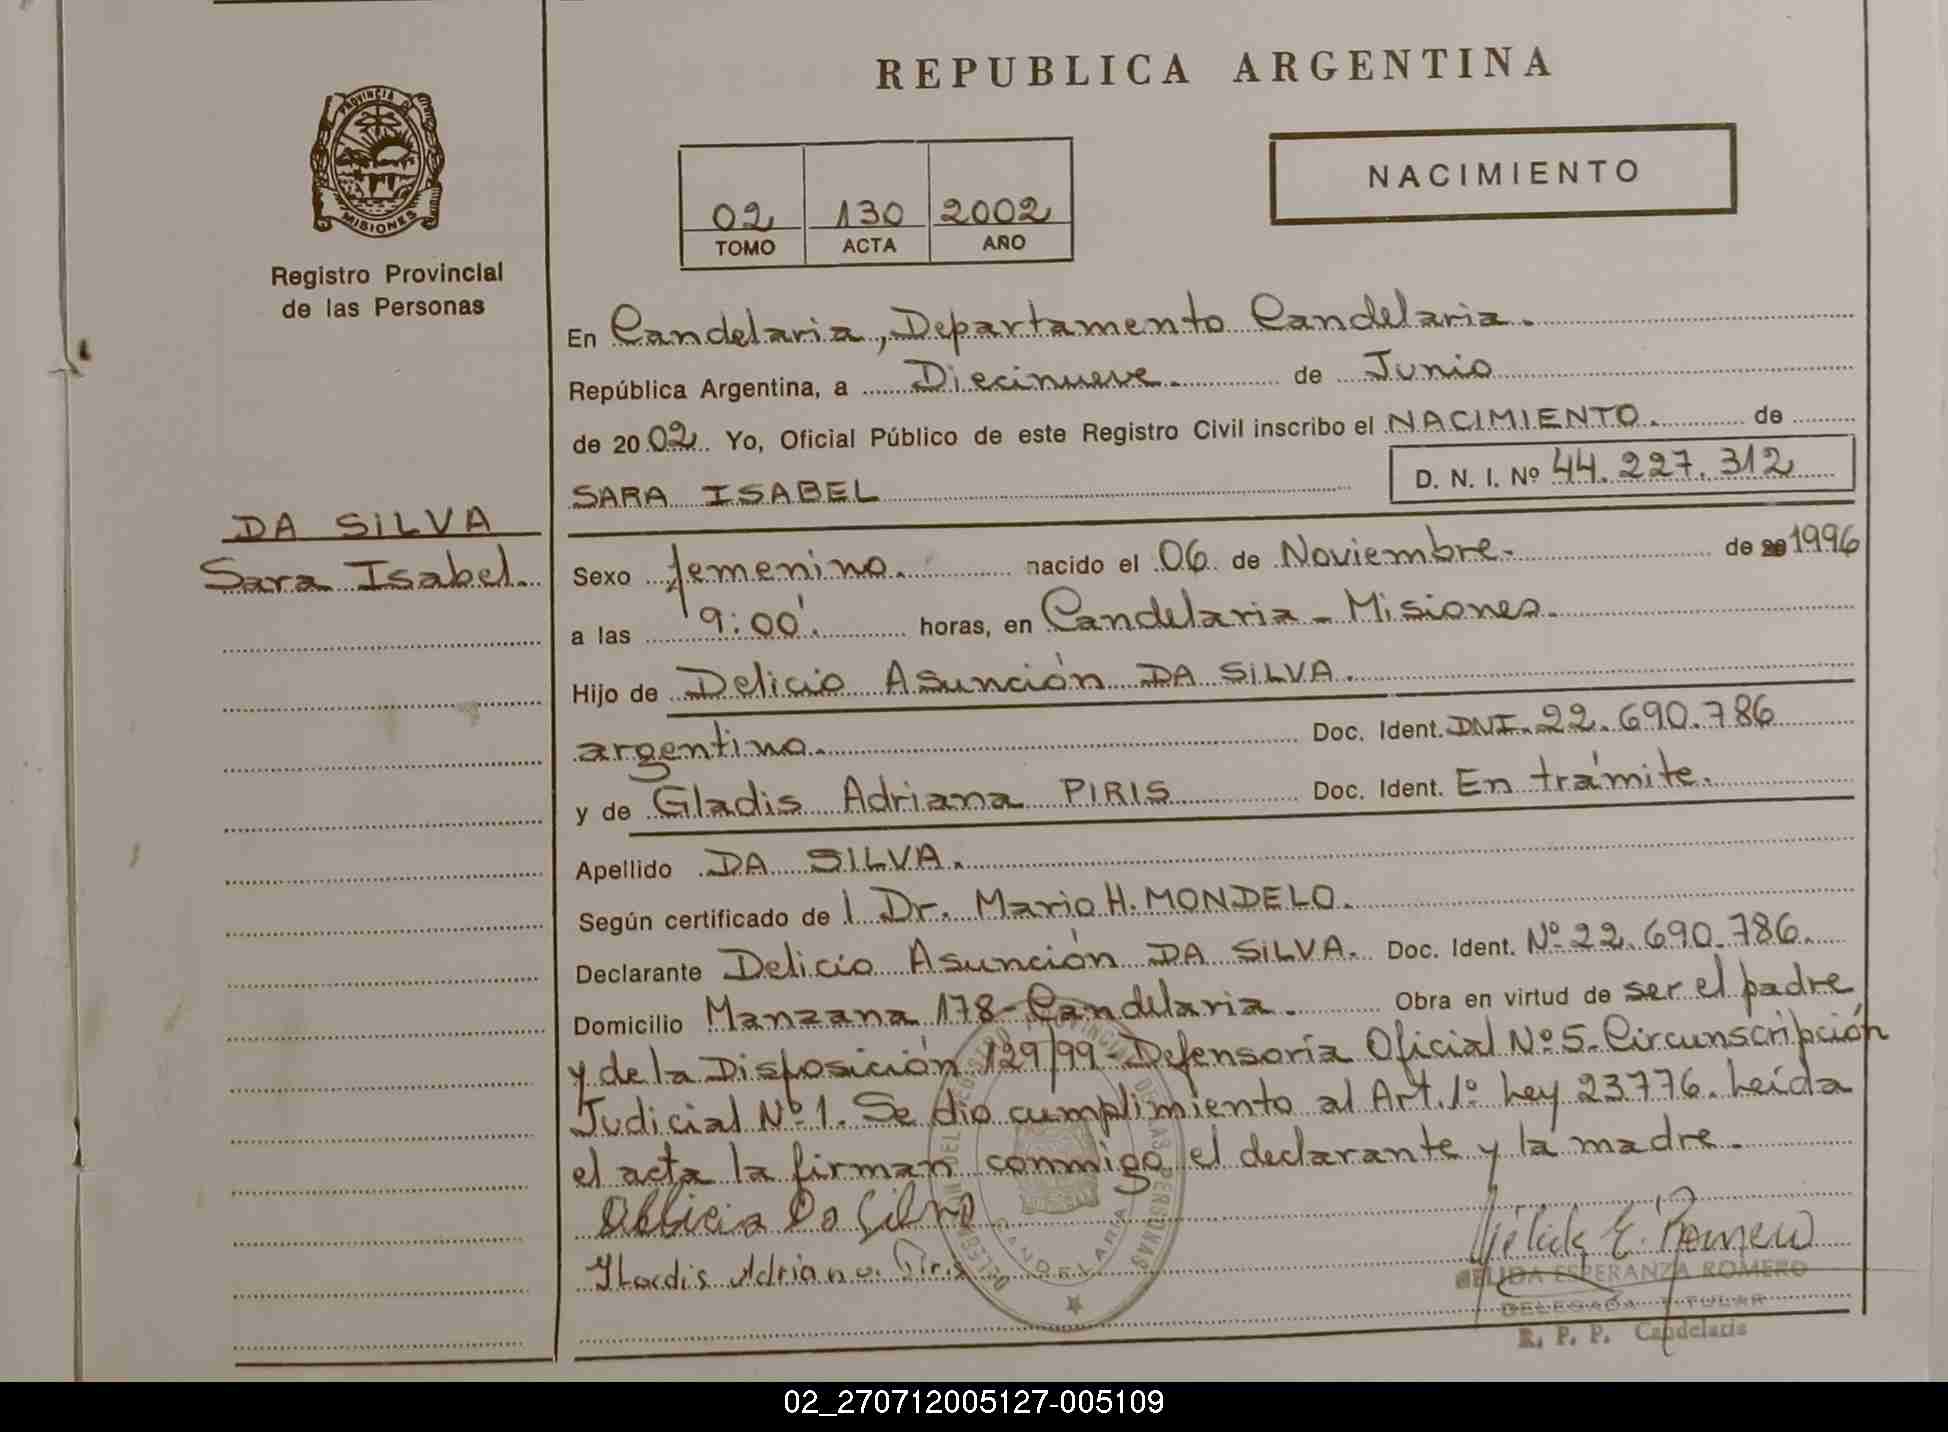 REPUBLICA ARGENTINA
PROVINCIA DE
MISIONES
Registro Provincial
de las Personas
02 130 2002
TOMO ACTA AÑO
NACIMIENTO
DA SILVA
Sara Isabel.
En Candelaria, Departamento Candelaria.
República Argentina, a Diecinueve. de Junio
de 2002. Yo, Oficial Público de este Registro Civil inscribo el NACIMIENTO. de
SARA ISABEL D. N. I. Nº 44.227.312
Sexo femenino. nacido el 06 de Noviembre. de 20 1996
a las 9:00'. horas, en Candelaria - Misiones.
Hijo de Delicio Asunción DA SILVA.
argentino. Doc. Ident. DNI. 22.690.786
y de Gladis Adriana PIRIS Doc. Ident. En trámite.
Apellido DA SILVA.
Según certificado de l Dr. Mario H. MONDELO.
Declarante Delicio Asunción DA SILVA. Doc. Ident. Nº 22.690.786.
Domicilio Manzana 178 - Candelaria. Obra en virtud de ser el padre
y de la Disposición 129/99 - Defensoría Oficial Nº 5. Circunscripción
Judicial Nº 1. Se dio cumplimiento al Art. 1º Ley 23776. Leída
el acta la firman conmigo el declarante y la madre.
Da Silva
Adriana Piris
E. Romero
ELIDA ESPERANZA ROMERO
DELEGADA TITULAR
R. P. P. Candelaria
DE LAS PERSONAS
CANDELARIA
02_270712005127-005109